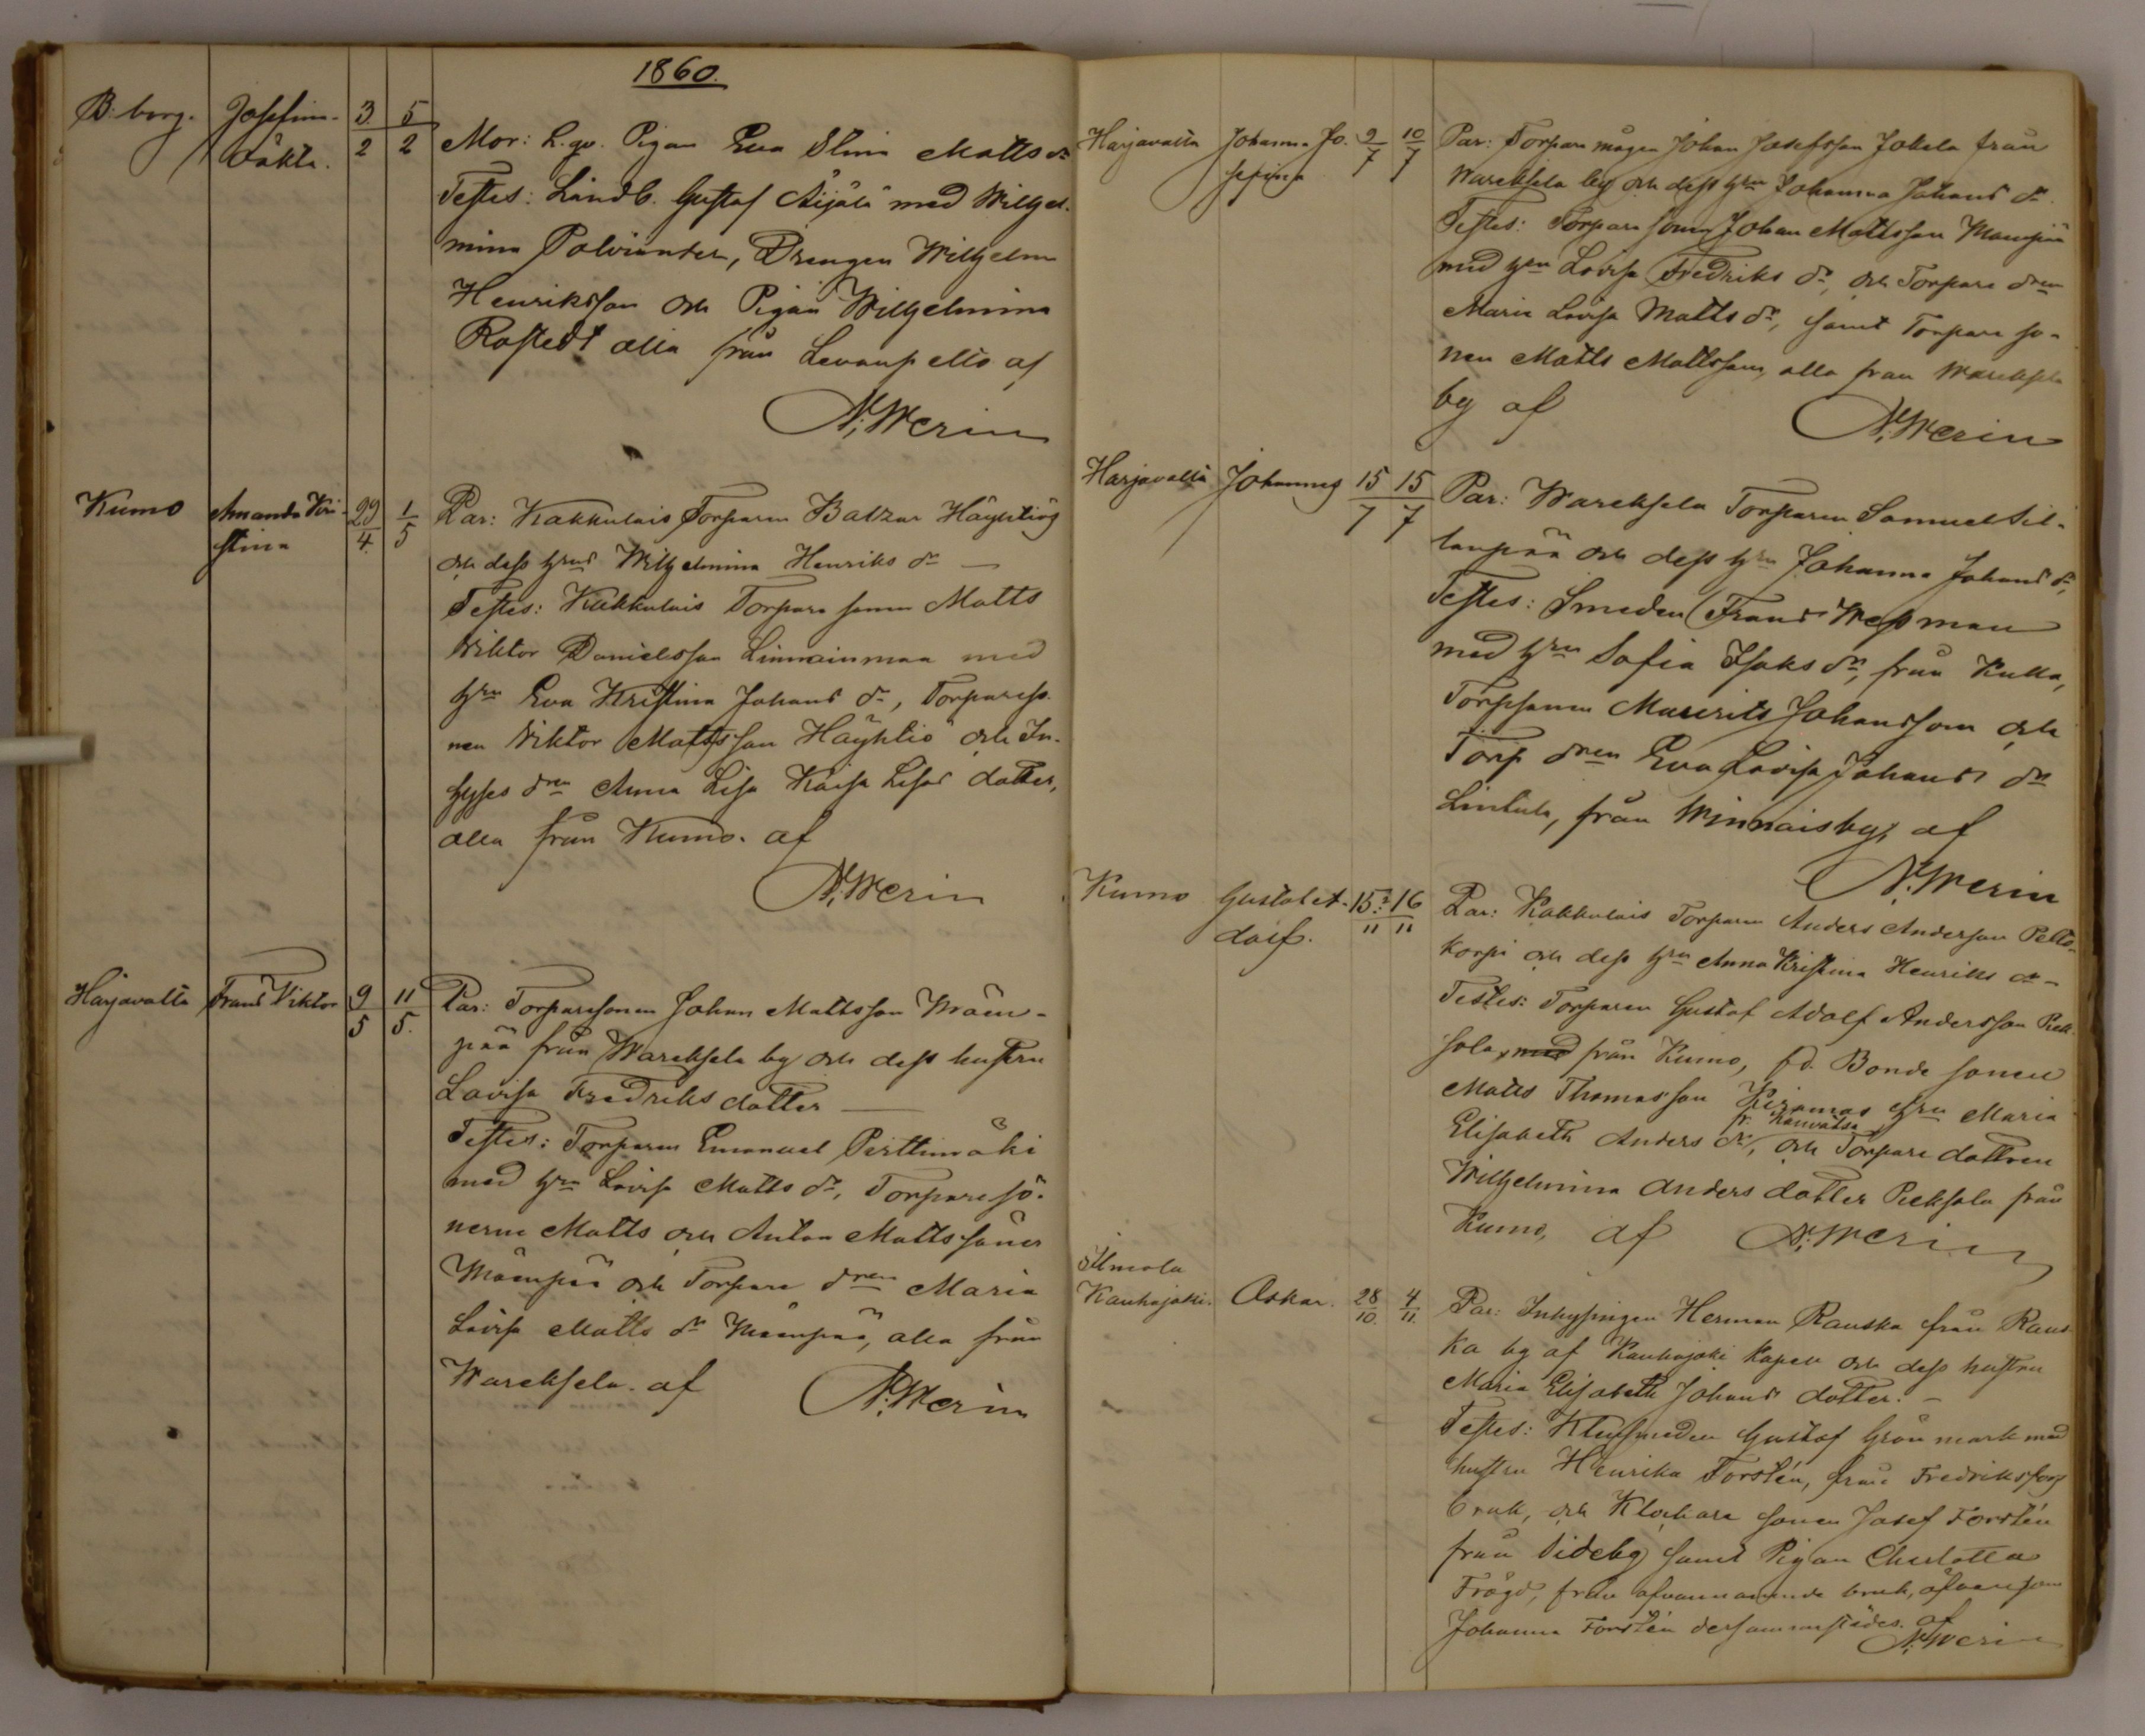 1860.
B:borg. Josefina 3/2 5/2
Mor: L. qv. Pigan Eva Stina Matts dr
Testes: Landb. Gustaf Äijälä med Wilhel-
mina Polviander, Drengen Wilhelm
Henriksson och Pigan Wilhelmina
Rostedt alla från Levanpelto af
N: Werin
Kumo Amanda Kri- 29/4. 1/5
stina
Par: Kakkulais Torparen Baltzar Häyhtiö
och dess hru Wilhelmina Henriks dr —
Testes: Kakkulais Torpare sonen Matts
Wiktor Danielsson Linnainmaa med
hru Eva Kristina Johans dr, Torpareso-
nen Wiktor Mattsson Häyhtiö och In-
hyses dren Anna Lisa Kaisa Lisas dotter,
alla från Kumo. af
N: Werin
Harjavalta Frans Viktor 9/5 11/5.
Par: Torparesonen Johan Mattsson Mäen-
pää från Wareksela by och dess hustru
Lovisa Fredriks dotter —
Testes: Torparen Emanuel Perttimäki
med hru Lovisa Matts dr, Torpare sö-
nerne Matts och Anton Matts söner
Mäenpää och Torpare dren Maria
Lovisa Matts dr Mäenpää, alla från
Wareksela. af N: Werin
Harjavalta Johanna Jo- 9/7 10/7
sefina
Par: Torpare mågen Johan Josefsson Jokela från
Wareksela by och dess hru Johanna Johans dr.
Testes: Torpare sonen Johan Mattsson Mäenpää
med hru Lovisa Fredriks dr, och Torpare dren
Maria Lovisa Matts dr, samt Torpare so-
nen Matts Mattsson, alla från Wareksela
by af N: Werin
Harjavalta Johannes 15/7 15/7
Par: Wareksela Torparen Samuel Sil-
lanpää och dess hru Johanna Johans dr,
Testes: Smeden Frans Wessman
med hru Sofia Isaks dr, från Kulla,
Torpsonen Maurits Johansson och
Torp dren Eva Lovisa Johans dr
Lintula, från Winnais by, af
N: Werin
Kumo Gustaf A- 15/11 16/11
dolf.
Par: Kakkulais Torparen Anders Anderson Pelto-
korpi och dess hru Anna Kristina Henriks dr —
Testes: Torparen Gustaf Adolf Andersson Piek-
sola, med från Kumo, fd. Bonde sonen
Matts Thomasson Kiramas hru Maria
fr. Kauvatsa
Elisabeth Anders dr, och Torpare dottren
Wilhelmina Anders dotter Pieksola från
Kumo, af N: Werin
Ilmola
Kauhajoki. Oskar. 28/10. 4/11.
Par: Inhysingen Herman Rauska från Raus-
ka by af Kauhajoki Kapell och dess hustru
Maria Elisabeth Johans dotter. —
Testes: Klensmeden Gustaf Grönmark med
hustru Henrika Forstén, från Fredriksfors
bruk, och Klockare sonen Josef Forstén
från Videby samt Pigan Charlotta
Frögd, från ofvannämnde bruk, äfvensom
Johanna Forstén dersammastädes. af
N: Werin